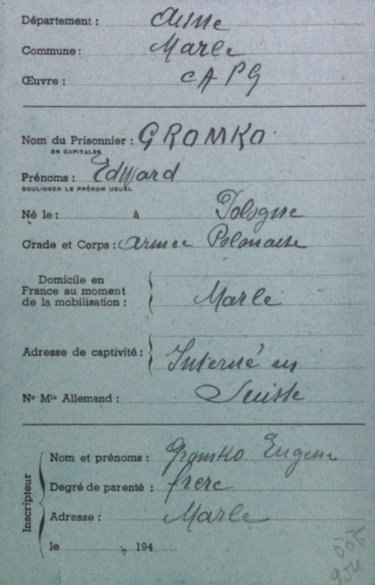 Département : Aisne
Commune : Marle
Œuvre : CAPG
Nom du Prisonnier : GROMKO
EN CAPITALES
Prénoms : Edward
SOULIGNER LE PRÉNOM USUEL
Né le : à Pologne
Grade et Corps : Armée Polonaise
Domicile en
France au moment
de la mobilisation : Marle
Adresse de captivité : Interné en
Nº Mle Allemand : Suisse
Inscripteur
Nom et prénoms : Gromko Eugene
Degré de parenté : frere
Adresse : Marle
le , 194